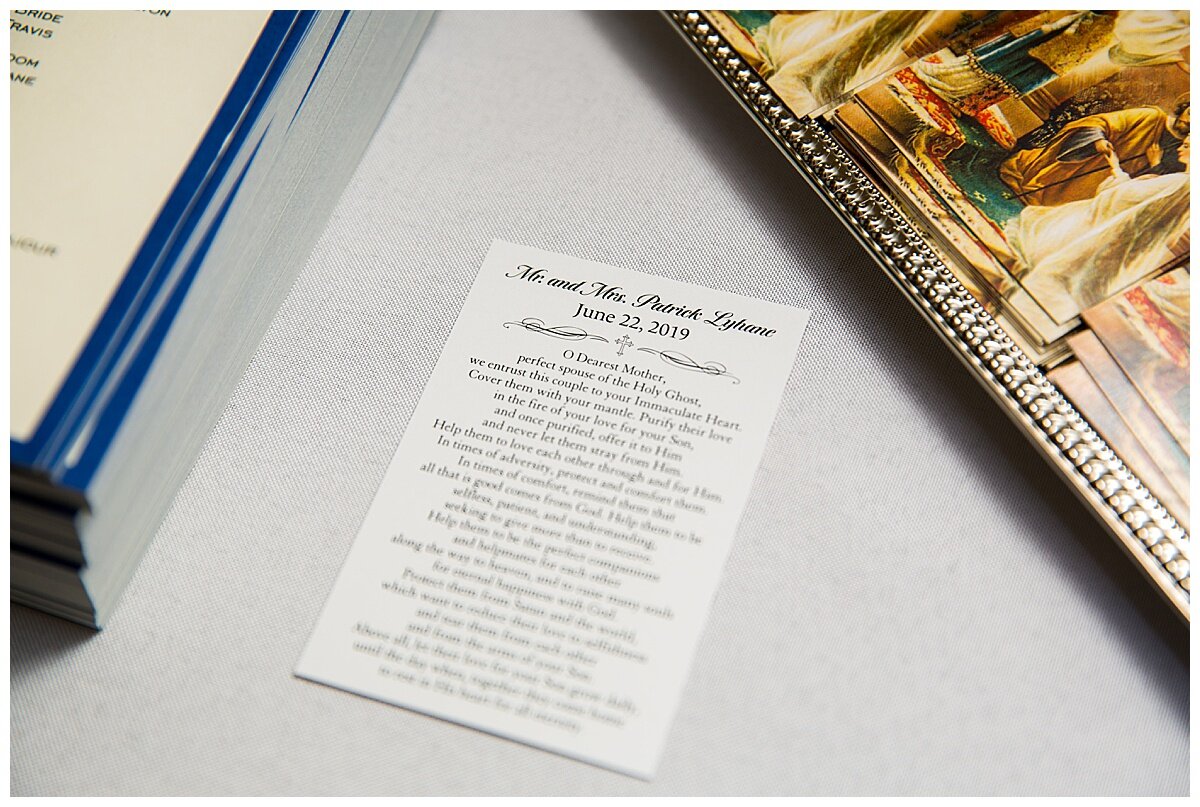 BRIDE
TRAVIS
Mr. and Mrs. Patrick Lyhane
June 22, 2019
O Dearest Mother,
perfect spouse of the Holy Ghost,
we entrust this couple to your Immaculate Heart.
Cover them with your mantle. Purify their love
in the fire of your love for your Son,
and once purified, offer it to Him
and never let them stray from Him.
Help them to love each other through and for Him.
In times of adversity, protect and comfort them.
In times of comfort, remind them that
all that is good comes from God. Help them to be
selfless, patient, and understanding,
seeking to give more than to receive.
Help them to be the perfect companions
and helpmates for each other
along the way to heaven, and to raise many souls
for eternal happiness with God.
Protect them from Satan and the world,
which want to reduce their love to selfishness
and tear them from each other
and from the arms of your Son.
Above all, let their love for your Son grow daily,
until the day when, together they come home
to rest in His heart for all eternity.